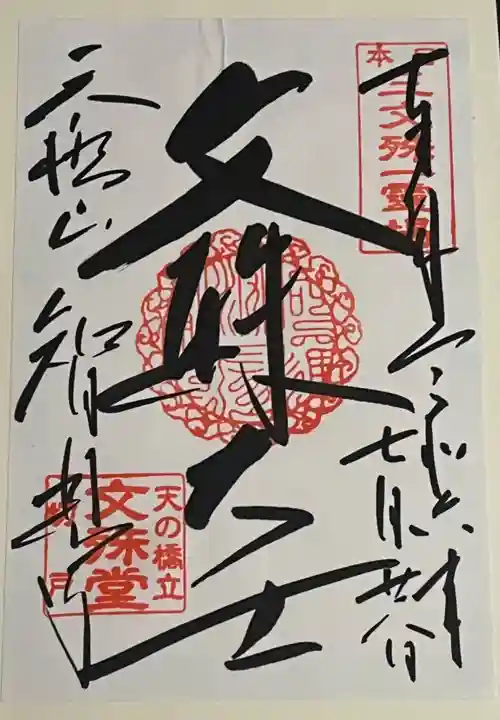 奉拝
令和六年
七月廿八日
日本三文殊一霊場
文殊大士
天橋山
智恩寺
天の橋立
文殊堂
切戸